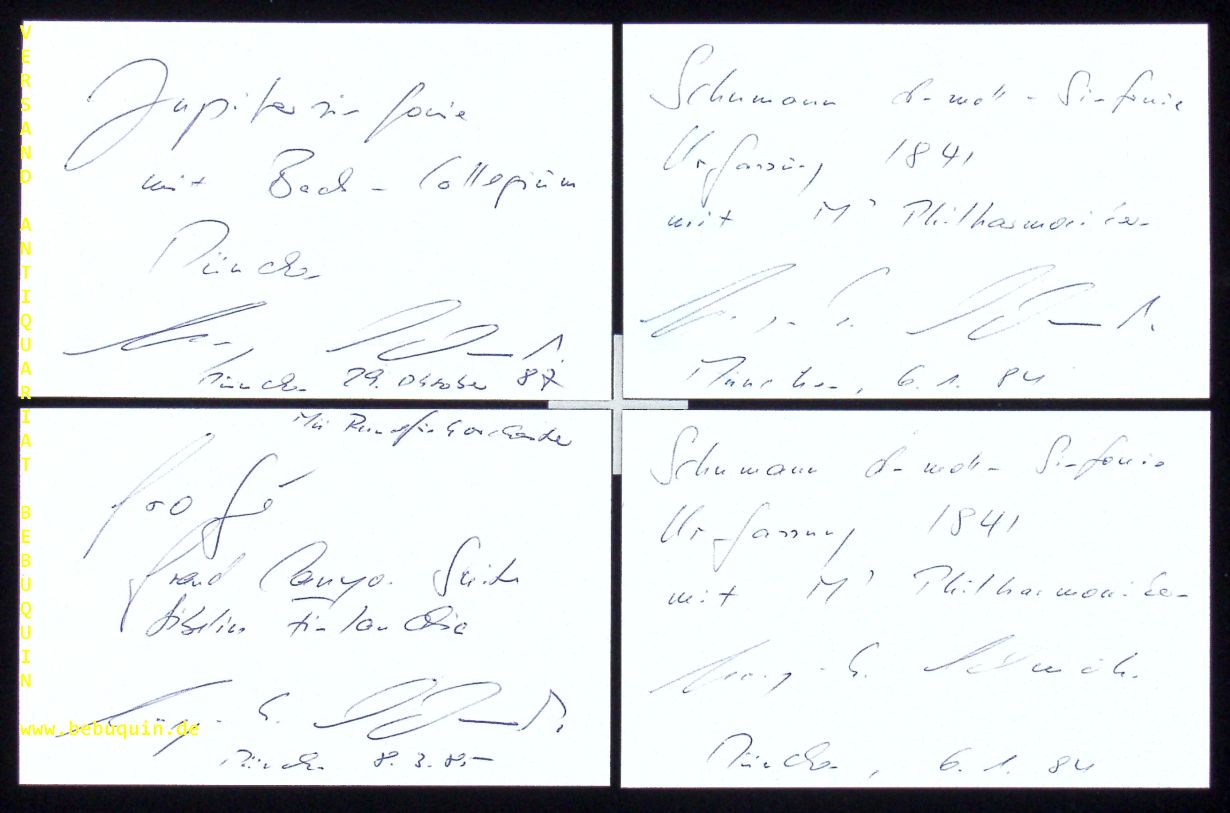 VERSAND ANTIQUARIAT BEBUQUIN
Jupitersinfonie
mit Bach-Collegium
München
München 29. Oktober 87
Schumann d-moll-Sinfonie
Urfassung 1841
mit M' Philharmoniker
München, 6. 1. 84
Mit Rundfunkorchester
Grofé
Grand Canyon Suite
Sibelius Finlandia
München 8. 3. 85
www.bebuquin.de
Schumann d-moll-Sinfonie
Urfassung 1841
mit M' Philharmoniker
München, 6. 1. 84